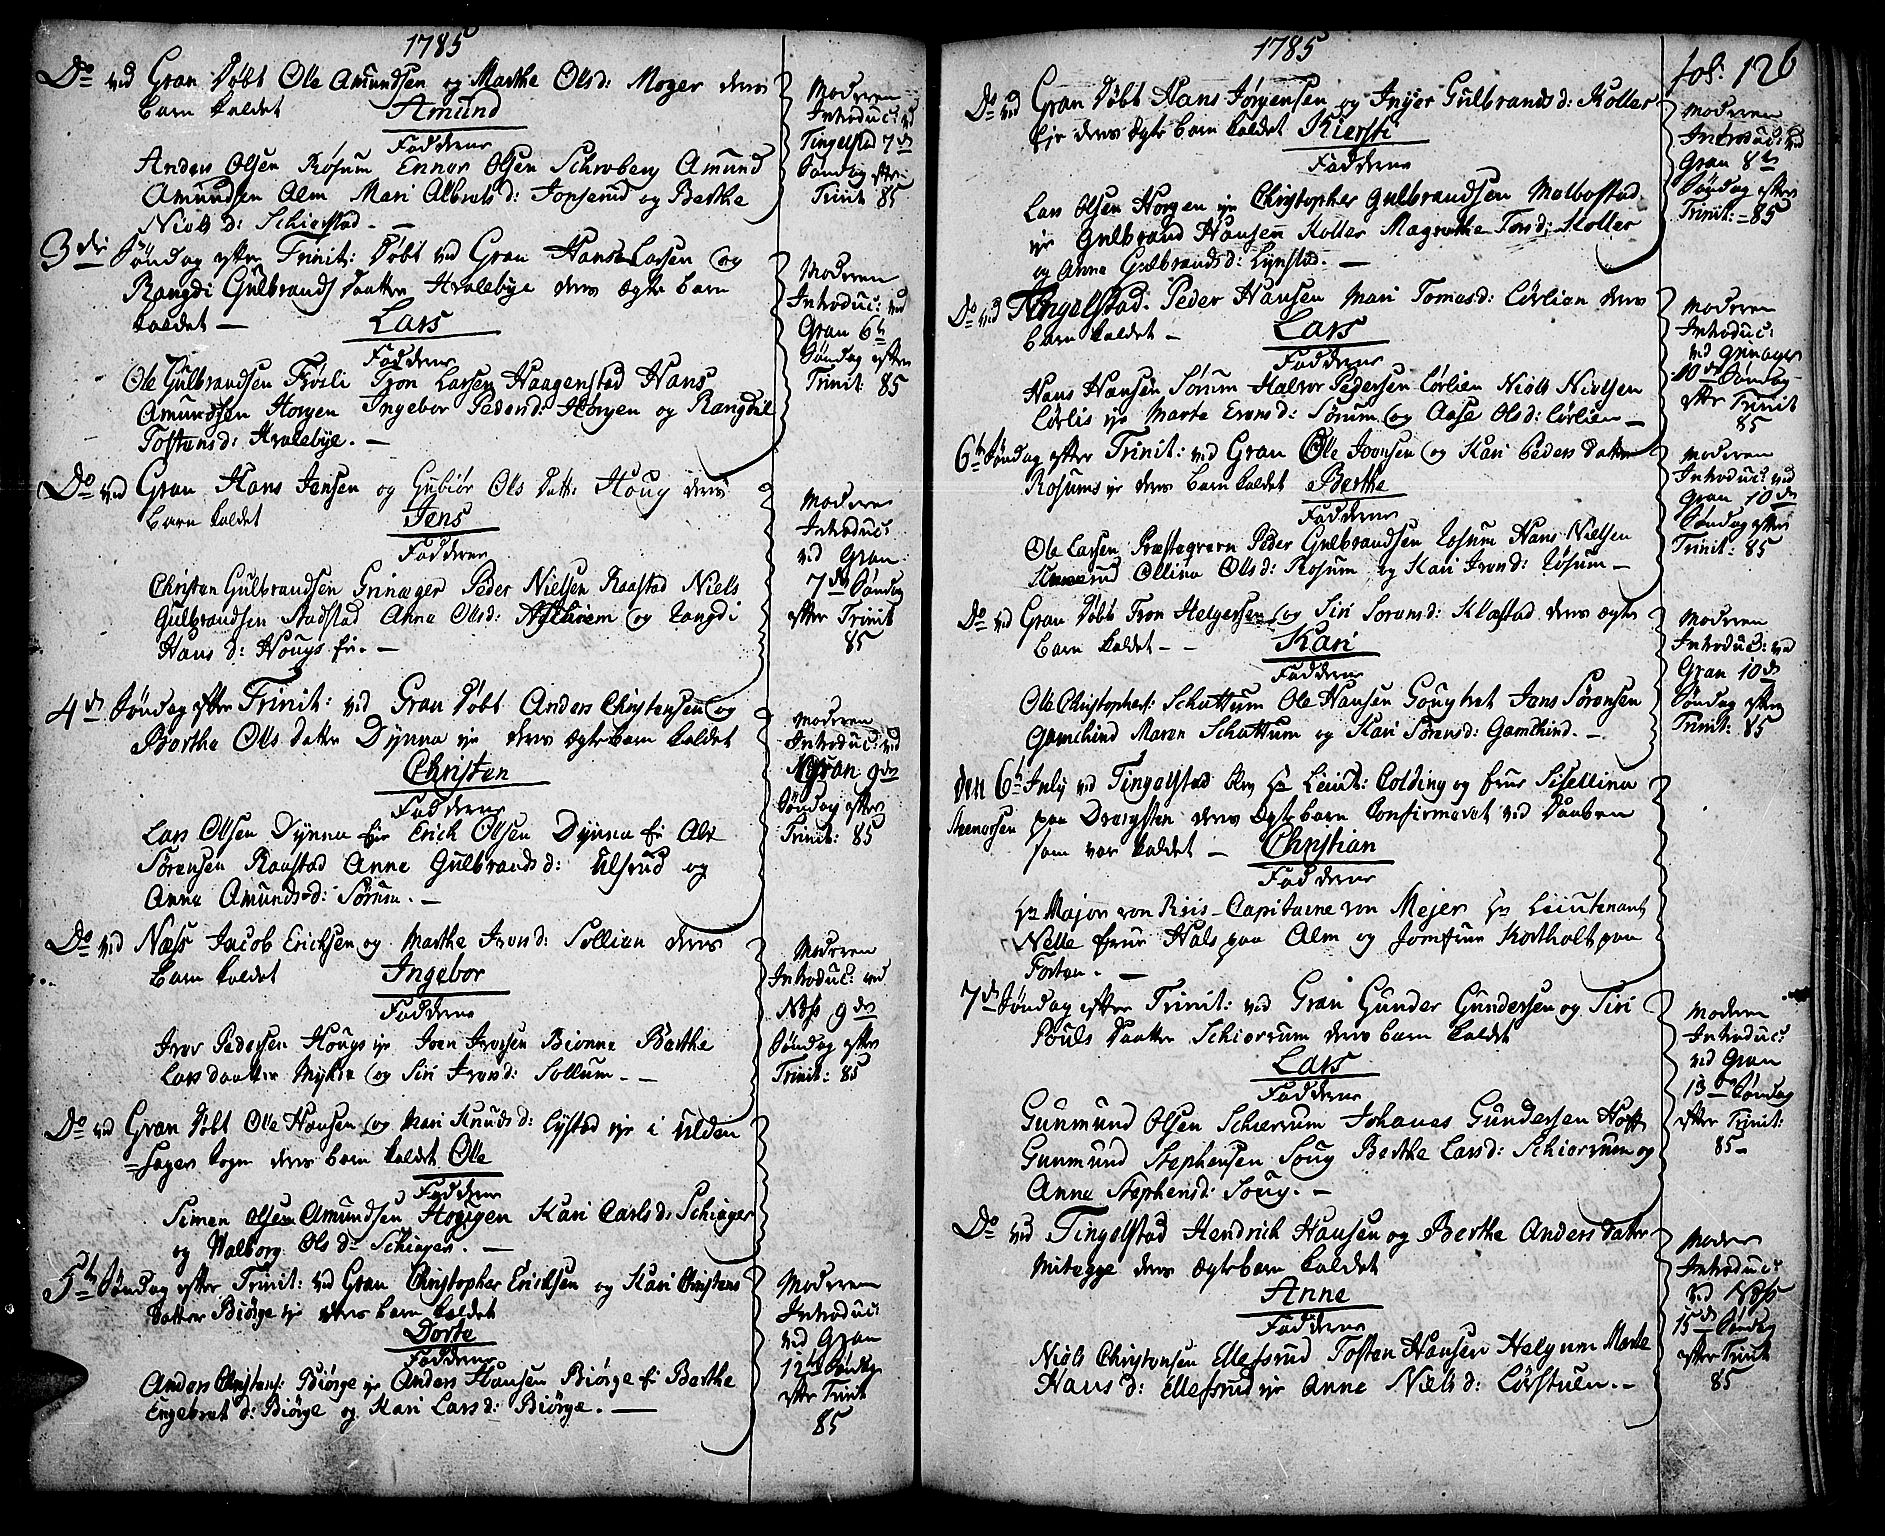 1785
Do ved Gran Døbt Ole Amundsen og Marthe Olsd: Moger deres
Barn kaldet Amund
Fadderne
Anders Olsen Røsum Ennor Olsen Schreberg Amund
Amundsen Alm Mari Albretsd: Jonserud og Berthe
Niels d: Schierstad. —
Moderen
Introduc: ved
Tingelstad 7de
Søndag efter
Trinit 85
3die Søndag efter Trinit: Døbt ved Gran Hans Larsen og
Rangdi Gulbrands Daatter Hvalebye deres ægte Barn
kaldet — Lars
Fadderne
Ole Gulbrandsen Frøsli Tron Larsen Haagenstad Hans
Amundsen Horgen Ingebor Pedersd: Horgen og Rangdil
Tostensd: Hvalebye. —
Moderen
Introduc: ved
Gran 6te
Søndag efter
Trinit: 85
Do ved Gran Hans Jensen og Gubiør Ols Datt: Houg deres
Barn kaldet Jens
Fadderne
Christen Gulbrandsen Grinager Peder Nielsen Raastad Niels
Gulbrandsen Stadstad Anne Olsd: og Rangdi
Hans d: Hougs Ei. —
Moderen
Introduc:
ved Gran
7de Søndag
efter Trinit
85
4de Søndag efter Trinit: ved Gran Døbt Anders Christensen og
Berthe Ols datter Dynna eje deres ægte barn kaldet
Christen
Fadderne
Lars Olsen Dynna Eie Erich Olsen Dynna Ei Ole
Sørensen Raastad Anne Gulbrandsd: Ulsrud og
Anne Amundsd: Sørum. —
Moderen
Introduc: ved
Gran 9de
Søndag efter
Trinit: 85
Do ved Næss Jacob Ericksen og Marthe Iversd: Sollien deres
Barn kaldet Ingebor
Fadderne
Iver Pedersen Hougs eje Joen Iversen Bionne Berthe
Lars daatter Myhre og Siri Iversd: Sollum. —
Moderen
Introduc: ved
Næss 9de
Søndag efter
Trinit: 85
Do ved Gran Døbt Ole Hansen og Mari Knudsd: Lystad eje i Ulden
=sager Sogn deres barn kaldet Ole
Fadderne
Simen Olsen Amundsen Horgen Kari Carlsd: Schiager
og Walborg Ols d: Schiager. —
5te Søndag efter Trinit: ved Gran Christopher Ericksen og Kari Christens
Datter Biørge eje deres barn kaldet
Dorte
Fadderne
Anders Christens: Biørge eje Anders Hansen Biørge Ei Berthe
Engebret d: Biørge og Kari Larsd: Biørge. —
Moderen
Introduc:
ved Gran
12te Søndag
efter Trinit
85
1785
fol: 126
Do ved Gran Døbt Hans Jørgensen og Inger Gulbrandsd: Koller
Eje deres ægte barn kaldet Kiersti
Fadderne
Lars Olsen Horgen eje Christopher Gulbrandsen Molbostad
eje Gulbrand Hansen Koller Magrethe Torsd: Koller
og Anne Gulbrandsd: Lynstad. —
Moderen
Introduc: ved
Gran 8de
Søndag efter
Trinit: 85
Do ved Tingelstad. Peder Hansen Mari Tomasd: Lørlien deres
Barn kaldet — Lars
Fadderne
Hans Hansen Sørum Halvor Pedersen Lørlien Niels Nielsen
Lørlie eje Marte Evensd: Sørum og Aase Olsd: Lørlien —
Moderen
Introduc:
ved Grinager
10de Søndag
efter Trinit
85
6te Søndag efter Trinit: ved Gran Ole Joensen og Kari Peders datter
Rosums eje deres Barn kaldet Berthe
Fadderne
Ole Larsen Præstegrern Peder Gulbrandsen Rosum Hans Nielsen
Ollina Olsd: Rosum og Kari Iversd: Rosum —
Moderen
Introduc: ved
Gran 10de
Søndag efter
Trinit: 85
Do ved Gran Døbt Tron Helgersen og Siri Sørensd: Klæstad deres ægte
Barn kaldet — Kari
Fadderne
Ole Christophers: Schattum Ole Hansen Jens Sørensen
Gamchind Maren Schattum og Kari Sørensd: Gamchind. —
Moderen
Introduc: ved
Gran 10de
Søndag efter
Trinit: 85
den 6te July ved Tingelstad blev Hr Leiut: Colding og frue Sisellina
Steenersen paa Dvergsten deres Ægtebarn Confirmeret ved Daaben
som var kaldet — Christian
Fadderne
Hr Major von Riis — Capitaine von Mejer Hr Leiutenant
Nelle frue Hals paa Alm og Jomfrue Kortholt paa
Josten. —
7de Søndag efter Trinit: ved Gran Gunder Gundersen og Siri
Pouls Daatter Schiervum deres barn kaldet
Lars
Fadderne
Gunmund Olsen Schiervum Johanes Gundersen Hoff
Gunmund Stephensen Soug Berthe Larsd: Schiervum og
Anne Stephensd: Soug. —
Moderen
Introduc:
ved Gran
13de Søndag
efter Trinit:
85 —
Do ved Tingelstad Hendrich Hansen og Berthe Anders datter
Mitegge deres Ægtebarn kaldet
Anne
Fadderne
Niels Christensen Ellefsrud Tosten Hansen Helgum Marte
Hans d: Ellefsrud eje Anne Nielsd: Lørstuen. —
Moder
Introduc:
ved Næss
15de Søndag
efter Trinit
85